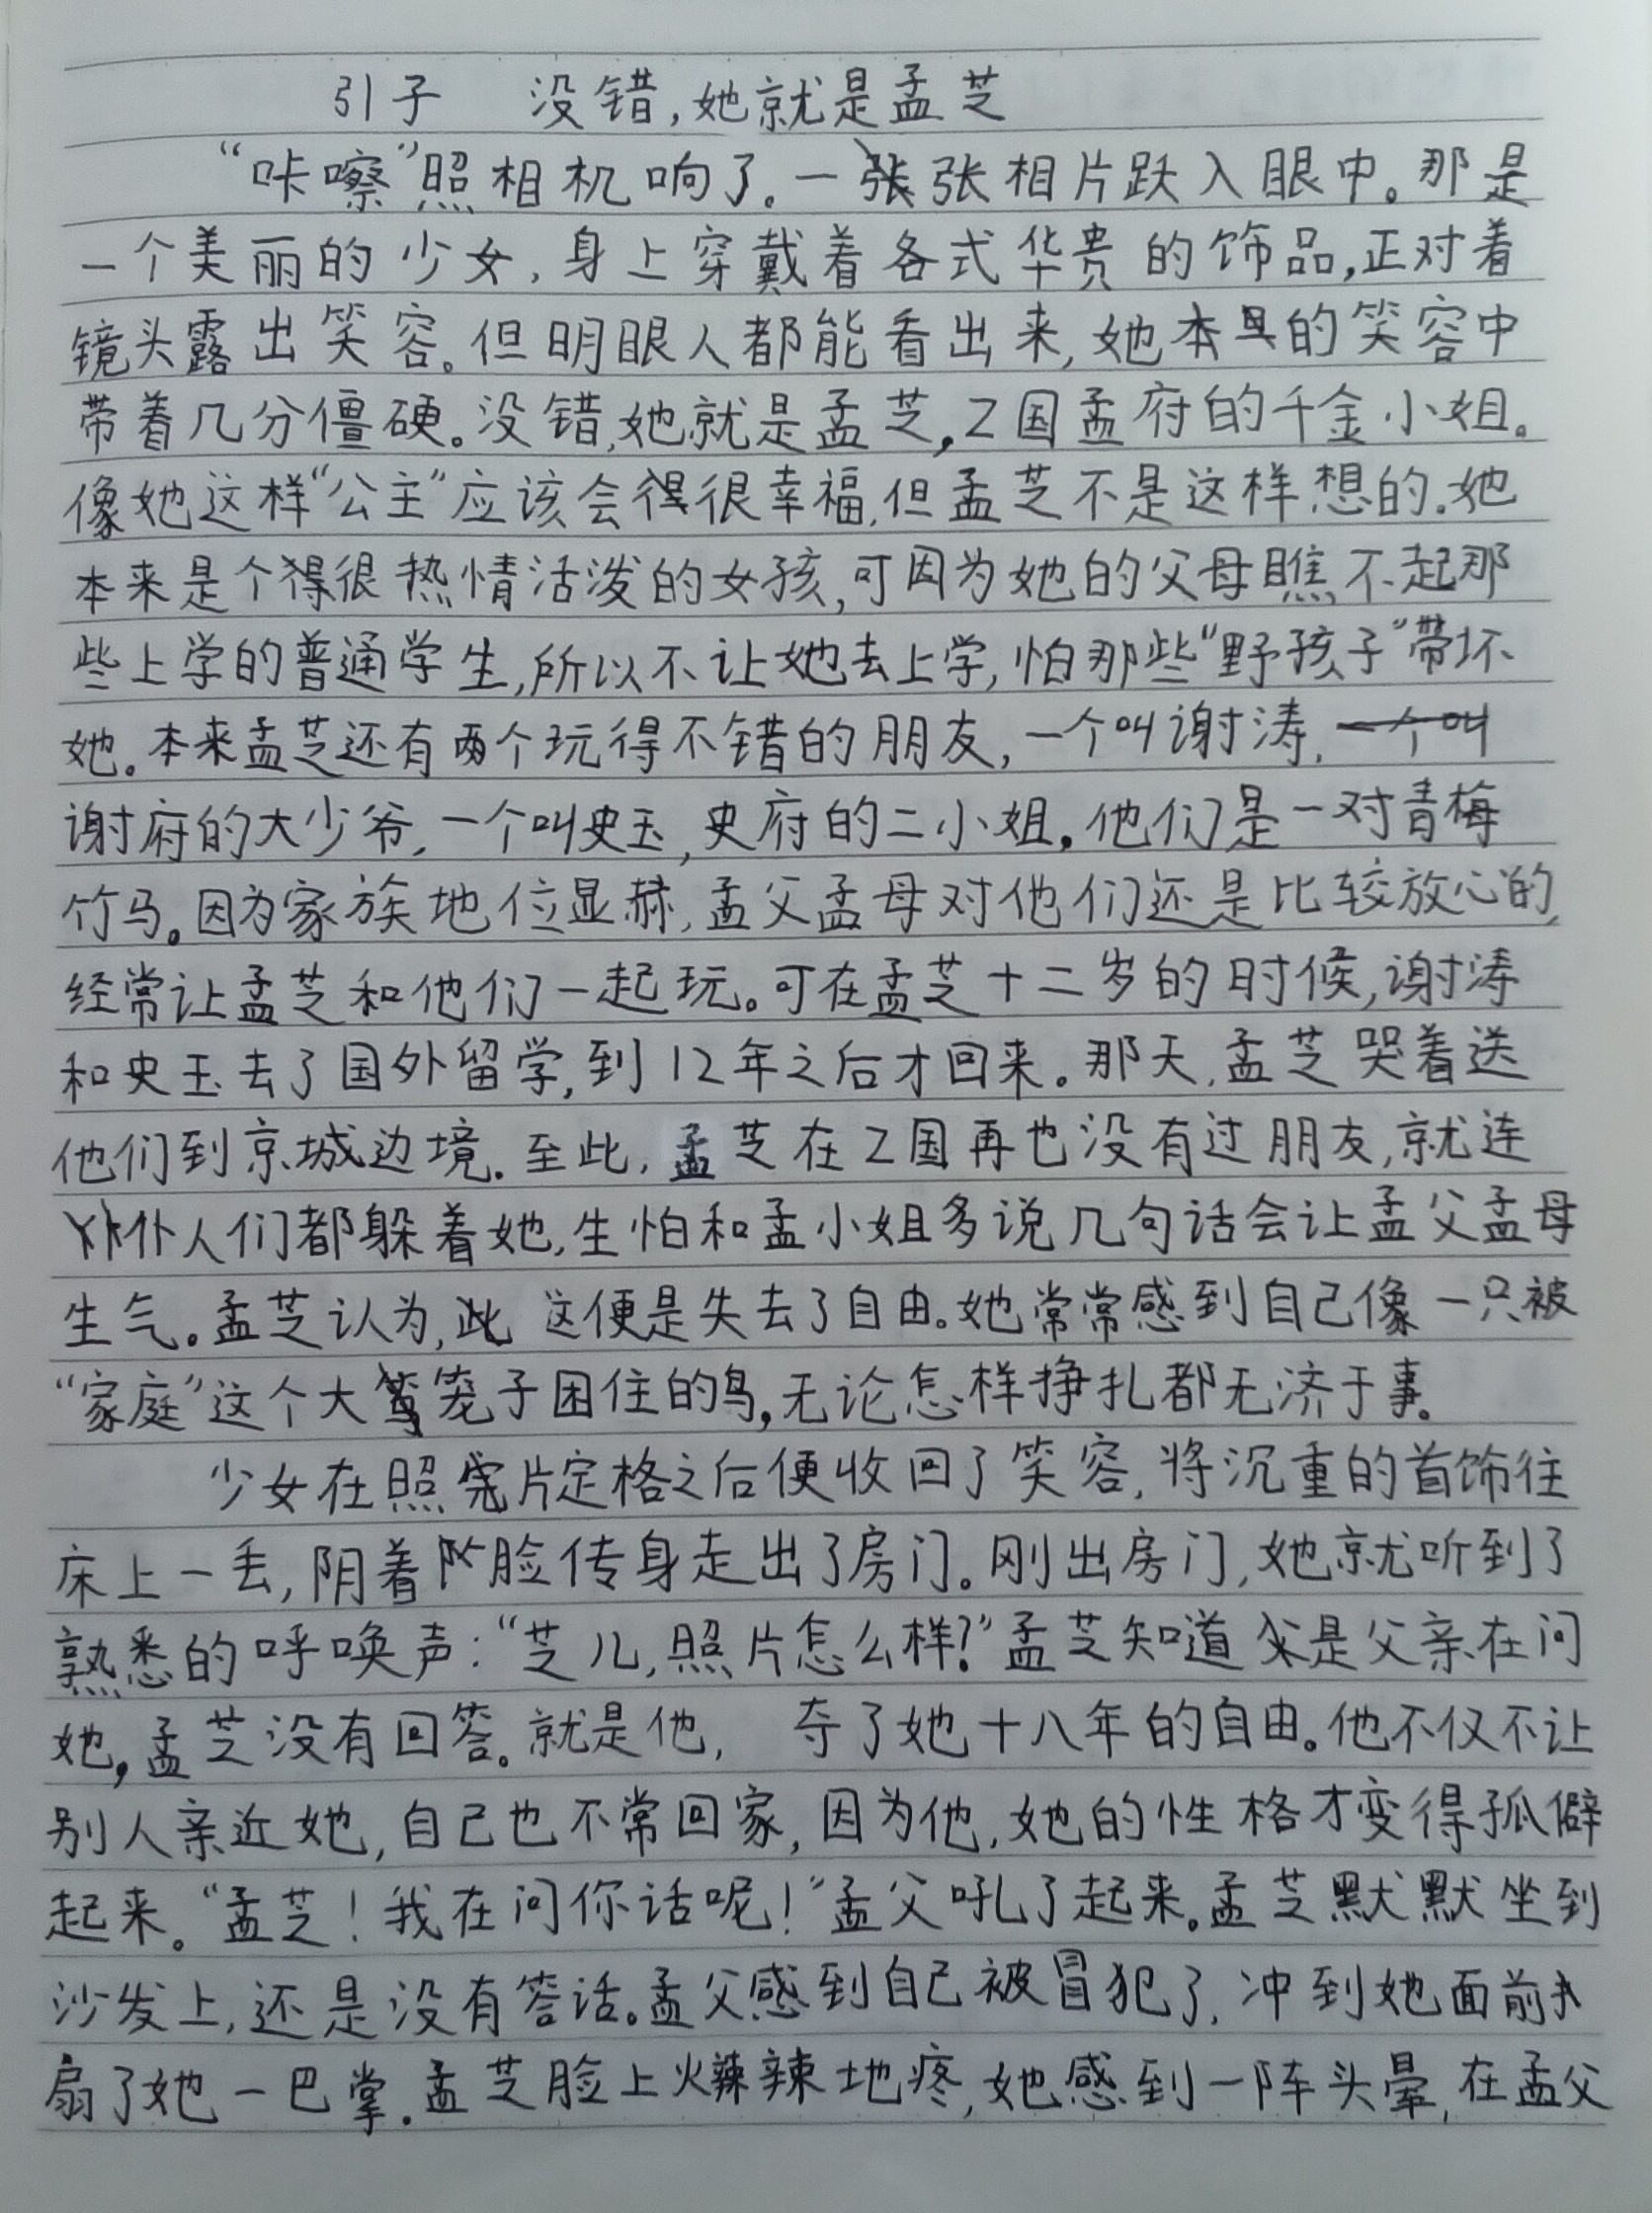 引子 没错,她就是孟芝
“咔嚓”照相机响了。一张张相片跃入眼中。那是
一个美丽的少女,身上穿戴着各式华贵的饰品,正对着
镜头露出笑容。但明眼人都能看出来,她本具的笑容中
带着几分僵硬。没错,她就是孟芝,Z国孟府的千金小姐。
像她这样“公主”应该会得很幸福,但孟芝不是这样想的.她
本来是个得很热情活泼的女孩,可因为她的父母瞧不起那
些上学的普通学生,所以不让她去上学,怕那些“野孩子”带坏
她。本来孟芝还有两个玩得不错的朋友,一个叫谢涛,
谢府的大少爷,一个叫史玉,史府的二小姐。他们是一对青梅
竹马。因为家族地位显赫,孟父孟母对他们还是比较放心的,
经常让孟芝和他们一起玩。可在孟芝十二岁的时候,谢涛
和史玉去了国外留学,到12年之后才回来。那天,孟芝哭着送
他们到京城边境.至此,孟芝在Z国再也没有过朋友,就连
仆人们都躲着她,生怕和孟小姐多说几句话会让孟父孟母
生气。孟芝认为,这便是失去了自由。她常常感到自己像一只被
“家庭”这个大笼子困住的鸟,无论怎样挣扎都无济于事。
少女在照片定格之后便收回了笑容,将沉重的首饰往
床上一丢,阴着脸传身走出了房门。刚出房门,她就听到了
熟悉的呼唤声:“芝儿,照片怎么样?”孟芝知道是父亲在问
她,孟芝没有回答。就是他, 夺了她十八年的自由。他不仅不让
别人亲近她,自己也不常回家,因为他,她的性格才变得孤僻
起来。“孟芝!我在问你话呢!”孟父吼了起来。孟芝默默坐到
沙发上,还是没有答话。孟父感到自己被冒犯了,冲到她面前
扇了她一巴掌.孟芝脸上火辣辣地疼,她感到一阵头晕,在孟父